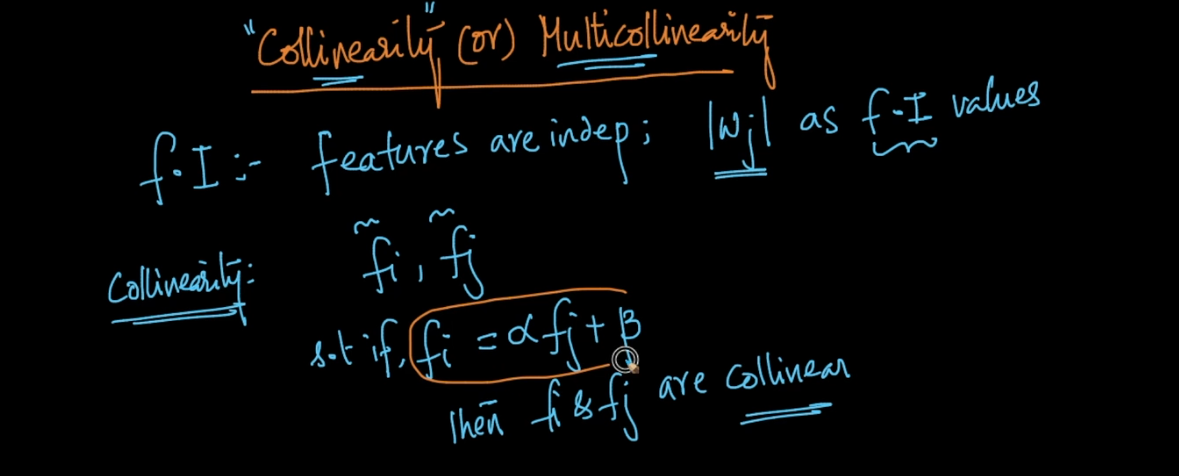 "Collinearity" (or) Multicollinearity
f.I :- features are indep; |Wj| as f.I values
Collinearity: fi, fj
s.t if, fi = αfj + β
then fi & fj are collinear